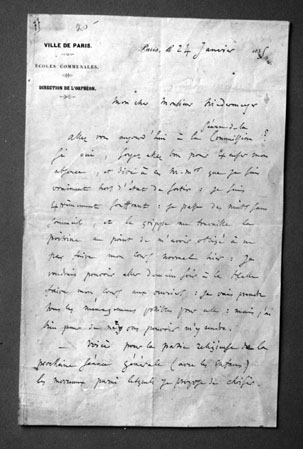 VILLE DE PARIS.
ÉCOLES COMMUNALES.
DIRECTION DE L'ORPHÉON.
Paris, le 24 Janvier
Mon cher Monsieur Niedermeyer
Séance de la
Allez vous aujourd'hui à la Commission?
Si oui, soyez assez bon pour excuser mon
absence, et dire à ces MM. que je suis
vraiment hors d'état de sortir; je suis
extrêmement souffrant: je passe des nuits sans
sommeil, et la grippe me travaille la
poitrine au point de m'avoir obligé à ne
pas faire mon cours normal hier: je
voudrais pouvoir aller demain soir à la Halle
faire mon cours aux ouvriers; je vais prendre
tous les ménagements possibles pour cela: mais j'ai
bien peur de ne pouvoir m'y rendre.
— Voici pour la partie religieuse de la
prochaine séance générale (avec les enfans)
les morceaux parmi lesquels je propose de choisir.